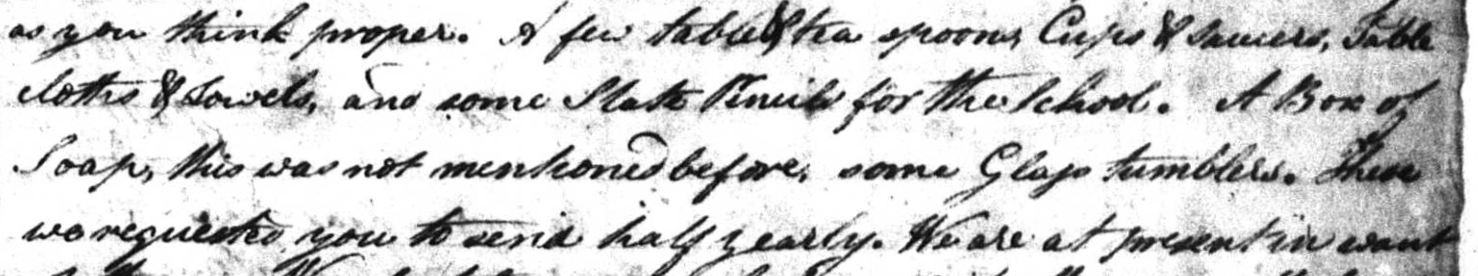 as you think proper. A few table & tea spoons, Cups & Saucers, Table
cloths & Towels, and some Slate Pencils for the School. A Box of
Soap, this was not mentioned before, some Glass tumblers. These
we requested you to send half yearly. We are at present in want